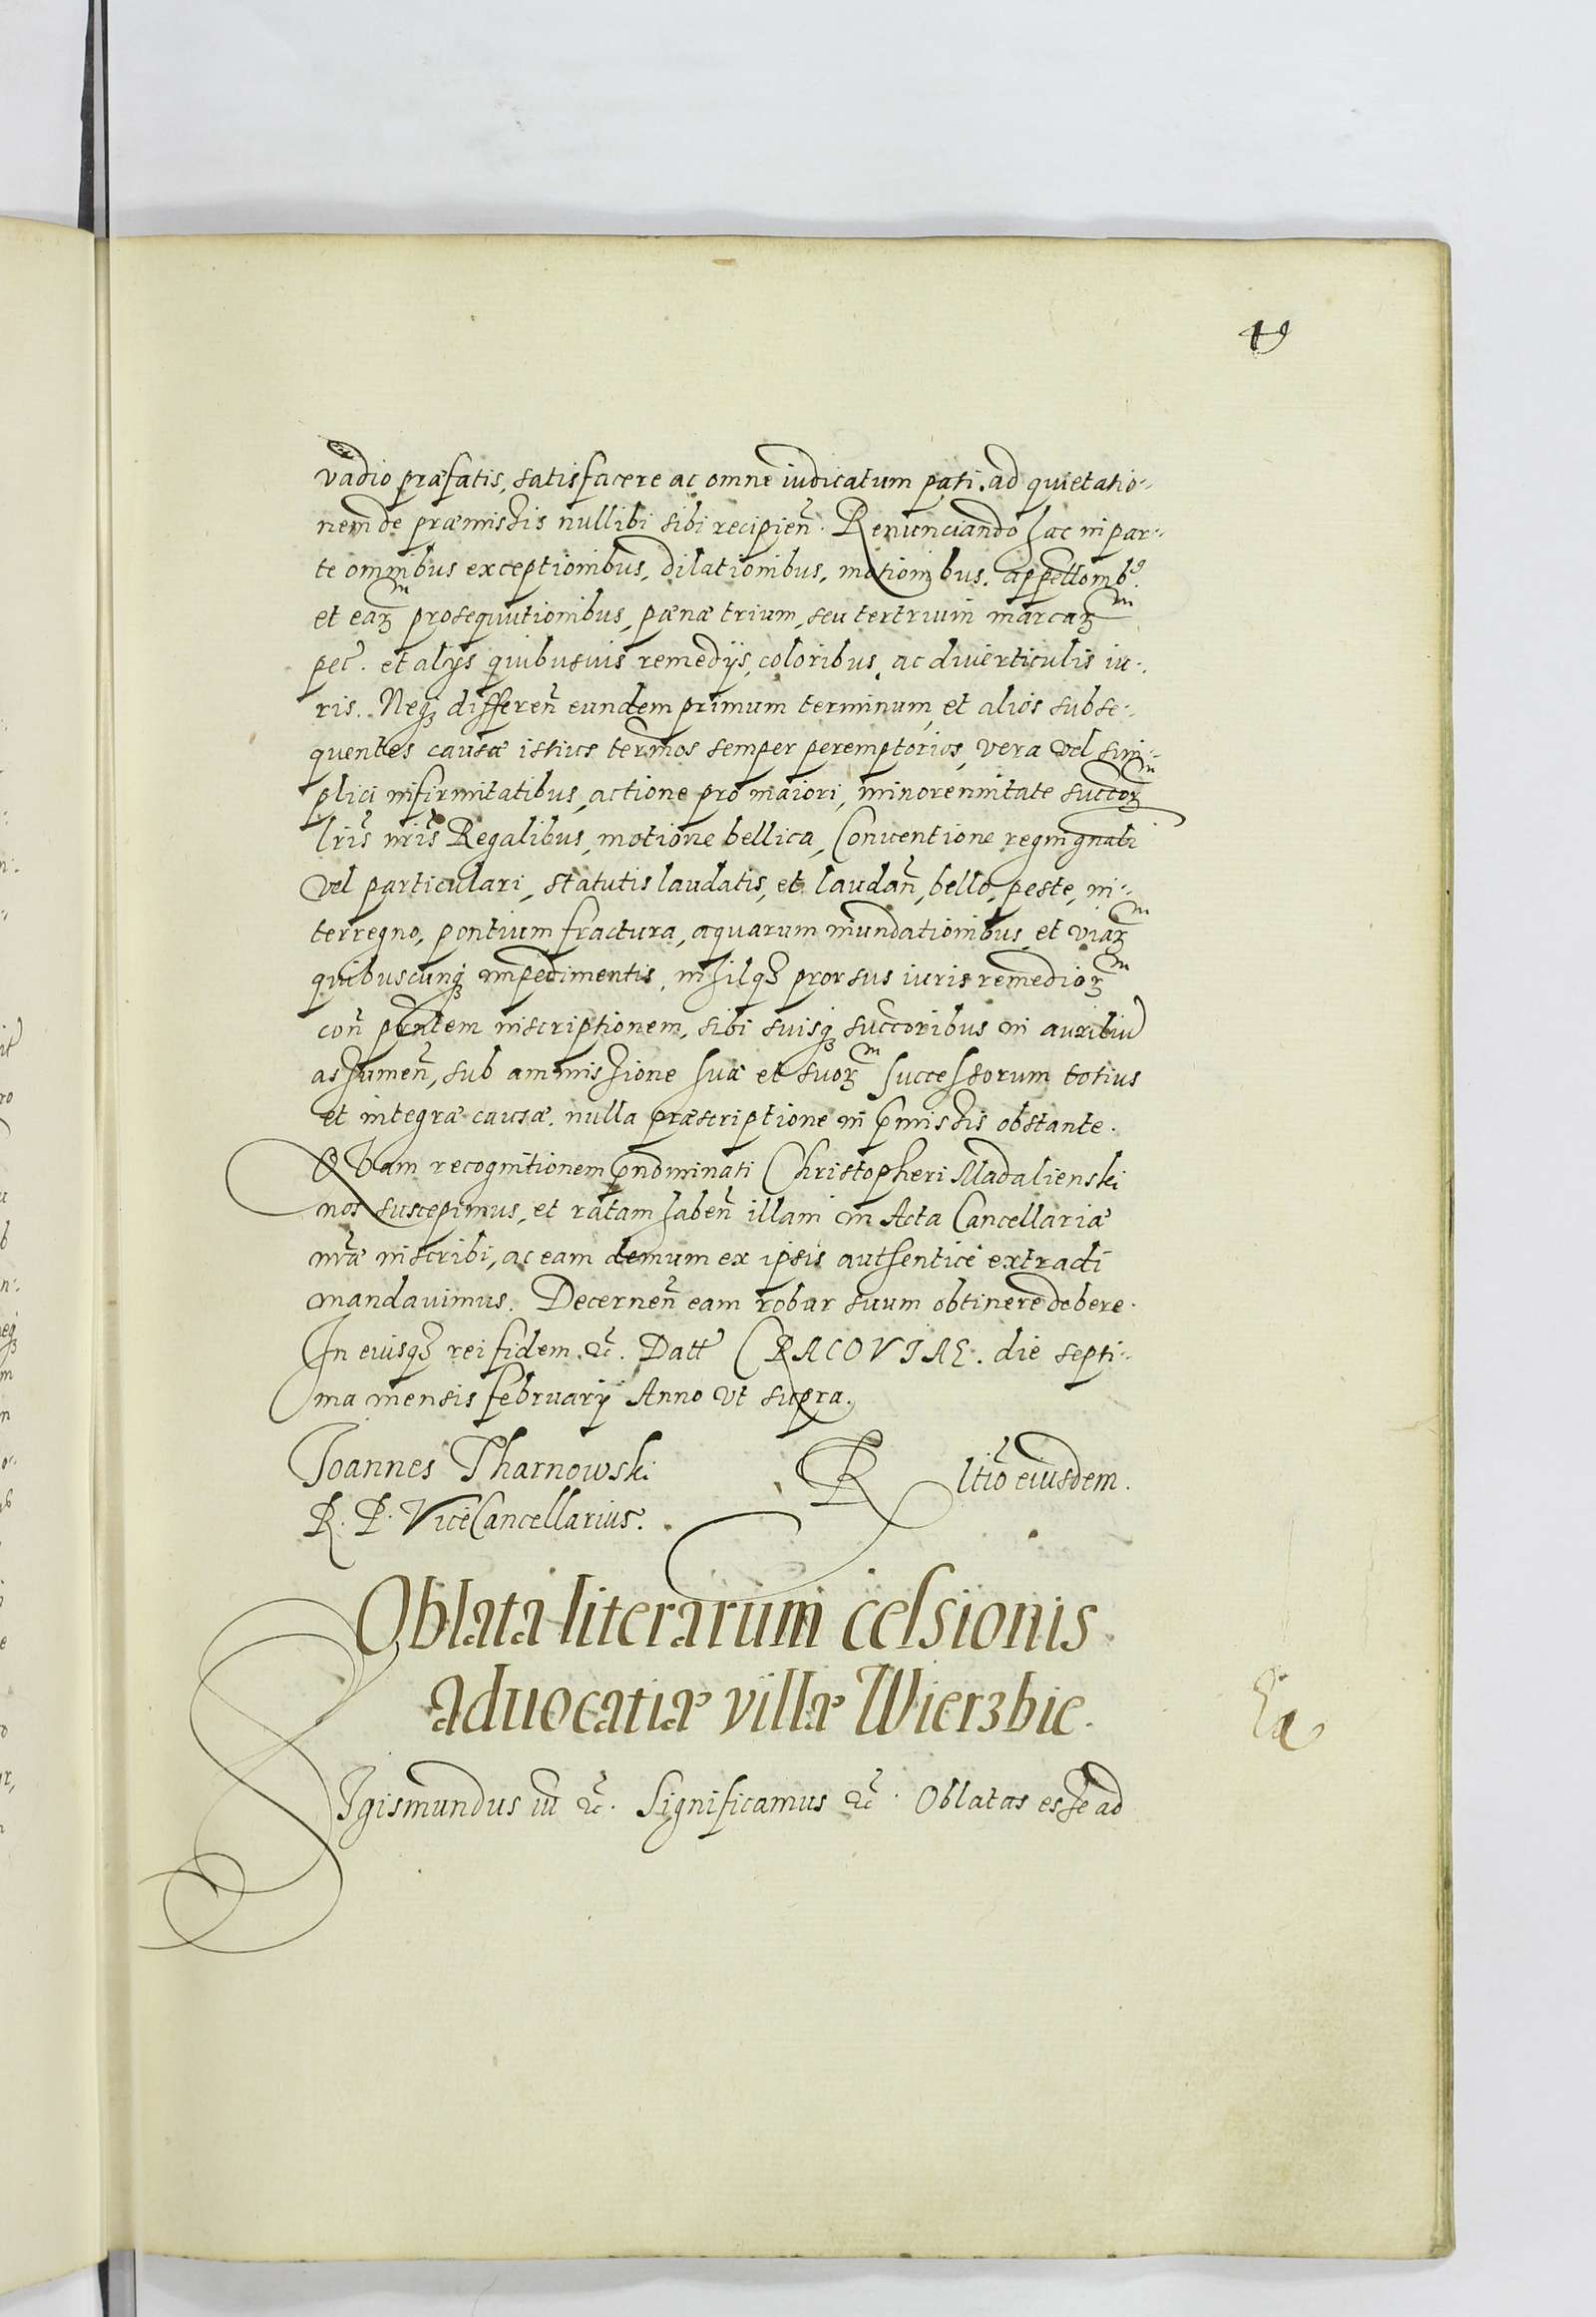 49
vadio præfatis, satisfacere ac omne iudicatum pati. ad quietatio-
nem de præmissis nullibi sibi recipien̄. Renunciando hac in par-
te omnibus exceptionibus, dilationibus, motionibus. appellōmbꝰ.
et eaꝝm prosequutionibus, pænæ trium, seu tertrium marcaꝝm
pec̄. et alijs quibusuis remedijs, coloribus, ac diuerticulis iu-
ris. Neqꝫ differen̄ eundem primum terminum, et alios subse-
quentes causæ istius term̄os semper peremptorios, vera vel sim-
plici infirmitatibus, actione pro maiori, minorennitate succoꝝm
lr̄is nr̄is Regalibus, motione bellica, Conuentione regni gnāli
vel particulari, statutis laudatis, et laudan̄, bello, peste, in-
terregno, pontium fractura, aquarum inundationibus, et viaꝝm
quibuscunqꝫ impedimentis, nihilqꝫ prorsus iuris remedioꝝm
con̄ prn̄tem inscriptionem, sibi suisqꝫ succoribus in auxiliū
assumen̄, sub ammissione suæ et suoꝝm successorum totius
et integræ causæ. nulla præscriptione in p̄missis obstante.
Quam recognitionem p̄nominati Christopheri Madalienski
nos suscepimus, et ratam haben̄ illam in Acta Cancellariæ
nr̄æ inscribi, ac eam demum ex ipsis authentice extradi
mandauimus. Decernen̄ eam robur suum obtinere debere.
In cuiusqꝫ rei fidem. &c̄. Datt CRACOVIAE. die septi-
ma mensis februarij Anno vt supra.
Joannes Tharnowski
R. P. ViceCancellarius.
R ltiō eiusdem.
Oblata literarum celsionis
aduocatiæ villæ Wierzbie.
SIgismundus iii &c̄. Significamus &c̄. Oblatas esse ad